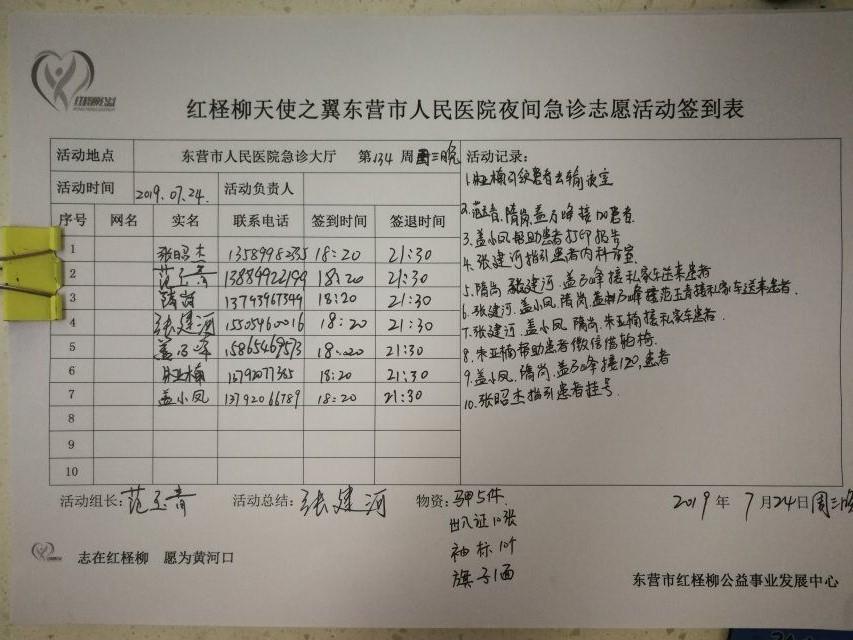 红柽柳天使之翼东营市人民医院夜间急诊志愿活动签到表
活动地点 东营市人民医院急诊大厅 第134周周三晚
活动时间 2019.07.24. 活动负责人
序号 网名 实名 联系电话 签到时间 签退时间
1 张昭杰 18:20 21:30
2 范玉青 13889922199 18:20 21:30
3 隋岗 13793967399 18:20 21:30
4 张建河 15505460016 18:20 21:30
5 盖万峰 15865469573 18:20 21:30
6 朱亚楠 18:20 21:30
7 盖小凤 13792066789 18:20 21:30
8
9
10
活动记录:
1.朱亚楠引领患者去输液室
2.范玉青.隋岗.盖万峰接120患者.
3.盖小凤帮助患者打印报告
4.张建河指引患者内科诊室.
5.隋岗 张建河.盖万峰接私家车送来患者
6.张建河.盖小凤 隋岗.盖万峰 范玉青接私家车送来患者.
7.张建河.盖小凤 隋岗.朱亚楠接私家车患者.
8.朱亚楠帮助患者微信借轮椅.
9.盖小凤.隋岗.盖万峰接120,患者
10.张昭杰指引患者挂号.
活动组长:范玉青 活动总结:张建河 物资:马甲5件.
出入证10张
袖标10个
旗子1面
2019年7月24日周三晚
志在红柽柳 愿为黄河口
东营市红柽柳公益事业发展中心